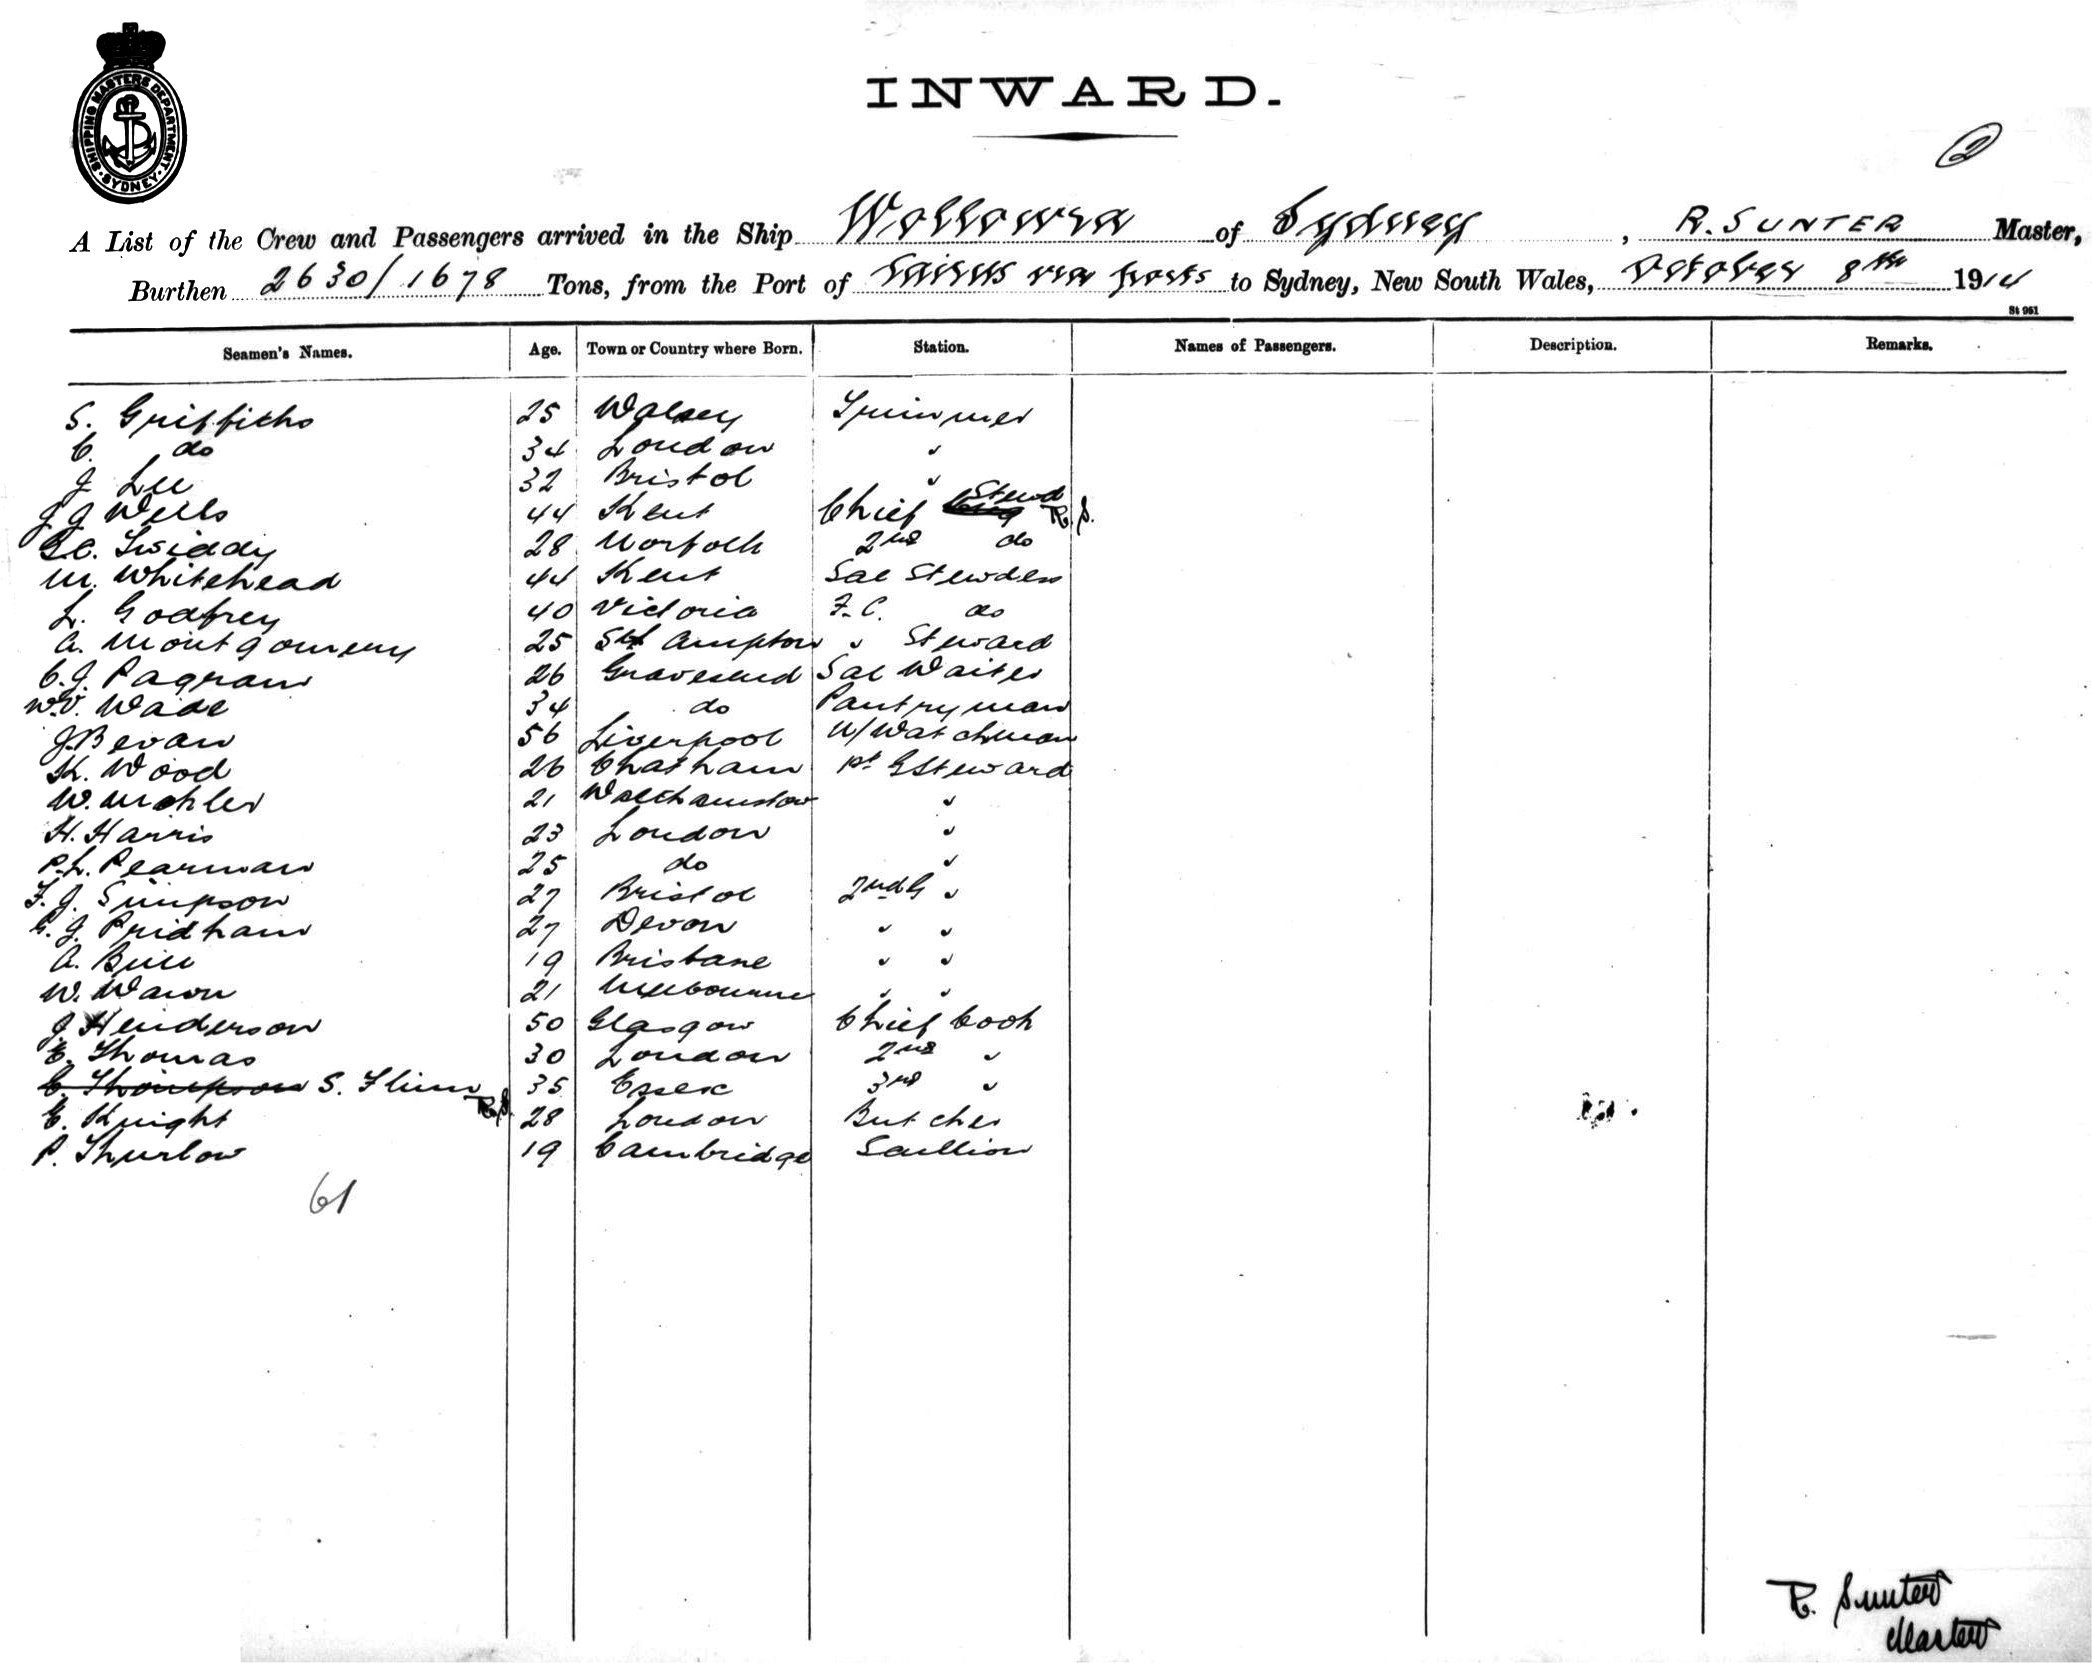 SHIPPING MASTERS DEPARTMENT SYDNEY
INWARD.
2
A List of the Crew and Passengers arrived in the Ship Wollowra of Sydney, R. SUNTER Master,
Burthen 2630/1678 Tons, from the Port of Cairns via ports to Sydney, New South Wales, October 8th 1914
St 961
Seamen's Names. Age. Town or Country where Born. Station. Names of Passengers. Description. Remarks.
S. Griffiths 25 Trimmer
C. do 34 London "
J Lee 32 Bristol "
J J Wells 44 Kent Chief Stewd R.S.
C. Twiddy 28 Norfolk 2nd do
M. Whitehead 44 Kent Sal Stewdess
L. Godfrey 40 Victoria F.C. do
A. Montgomery 25 Sth Ampton " Steward
C.J. Pagram 26 Gravesend Sal Waiter
W.V. Wade 34 do Pantryman
J. Bevan 56 Liverpool N/Watchman
K. Wood 26 Chatham Steward
W. 21 Walthamstow "
H. Harris 23 London "
P.L. Pearman 25 do "
F.J. Simpson 27 Bristol 2nd G "
G.J. Pridham 27 Devon " "
A. Bell 19 Brisbane " "
W. 21 Melbourne " "
J Henderson 50 Glasgow Chief Cook
E. Thomas 30 London 2nd "
C. Thompson S. Flinn R.S. 35 Essex 3rd "
E. Knight 28 London Butcher
P. Thurlow 19 Cambridge Scullion
61
R. Sunter
Master